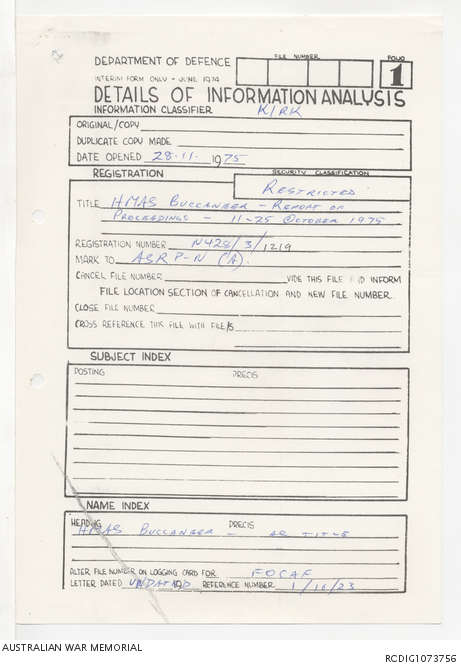 DEPARTMENT OF DEFENCE
FILE NUMBER
FOLIO
1
INTERIM FORM ONLY - JUNE, 1974
DETAILS OF INFORMATION ANALYSIS
INFORMATION CLASSIFIER KIRK
ORIGINAL/COPY
DUPLICATE COPY MADE
DATE OPENED 28.11. 1975
REGISTRATION
SECURITY CLASSIFICATION
RESTRICTED
TITLE HMAS BUCCANEER - REPORT OF
PROCEEDINGS - 11-25 OCTOBER 1975
REGISTRATION NUMBER N428/3/1219
MARK TO ASRP-N (A).
CANCEL FILE NUMBER VIDE THIS FILE AND INFORM
FILE LOCATION SECTION OF CANCELLATION AND NEW FILE NUMBER.
CLOSE FILE NUMBER
CROSS REFERENCE THIS FILE WITH FILE/S
SUBJECT INDEX
POSTING PRECIS
NAME INDEX
HEADING PRECIS
HMAS BUCCANEER - AS TITLE
ALTER FILE NUMBER ON LOGGING CARD FOR FOCAF
LETTER DATED UNDATED 19 REFERENCE NUMBER 1/16/23
AUSTRALIAN WAR MEMORIAL
RCDIG1073756